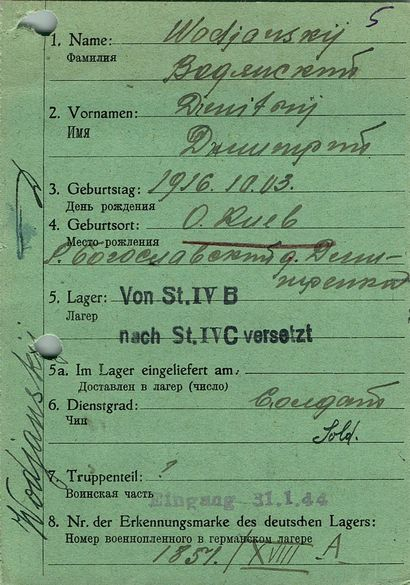 5
1. Name: Wodjanskij
Фамилия Водянский
2. Vornamen: Dmitorij
Имя Дмитрий
3. Geburtstag: 1916.10.03.
День рождения
4. Geburtsort: О. Киев
Место рождения
Р. Богославский д.
5. Lager: Von St. IV B
Лагер
nach St. IV C versetzt
5a. Im Lager eingeliefert am:
Доставлен в лагер (число)
6. Dienstgrad: Солдат
Чин
Sold.
7. Truppenteil: ?
Воинская часть
Eingang 31.1.44
8. Nr. der Erkennungsmarke des deutschen Lagers:
Номер военнопленного в германском лагере
1851 / XVIII A
Wodjanskij